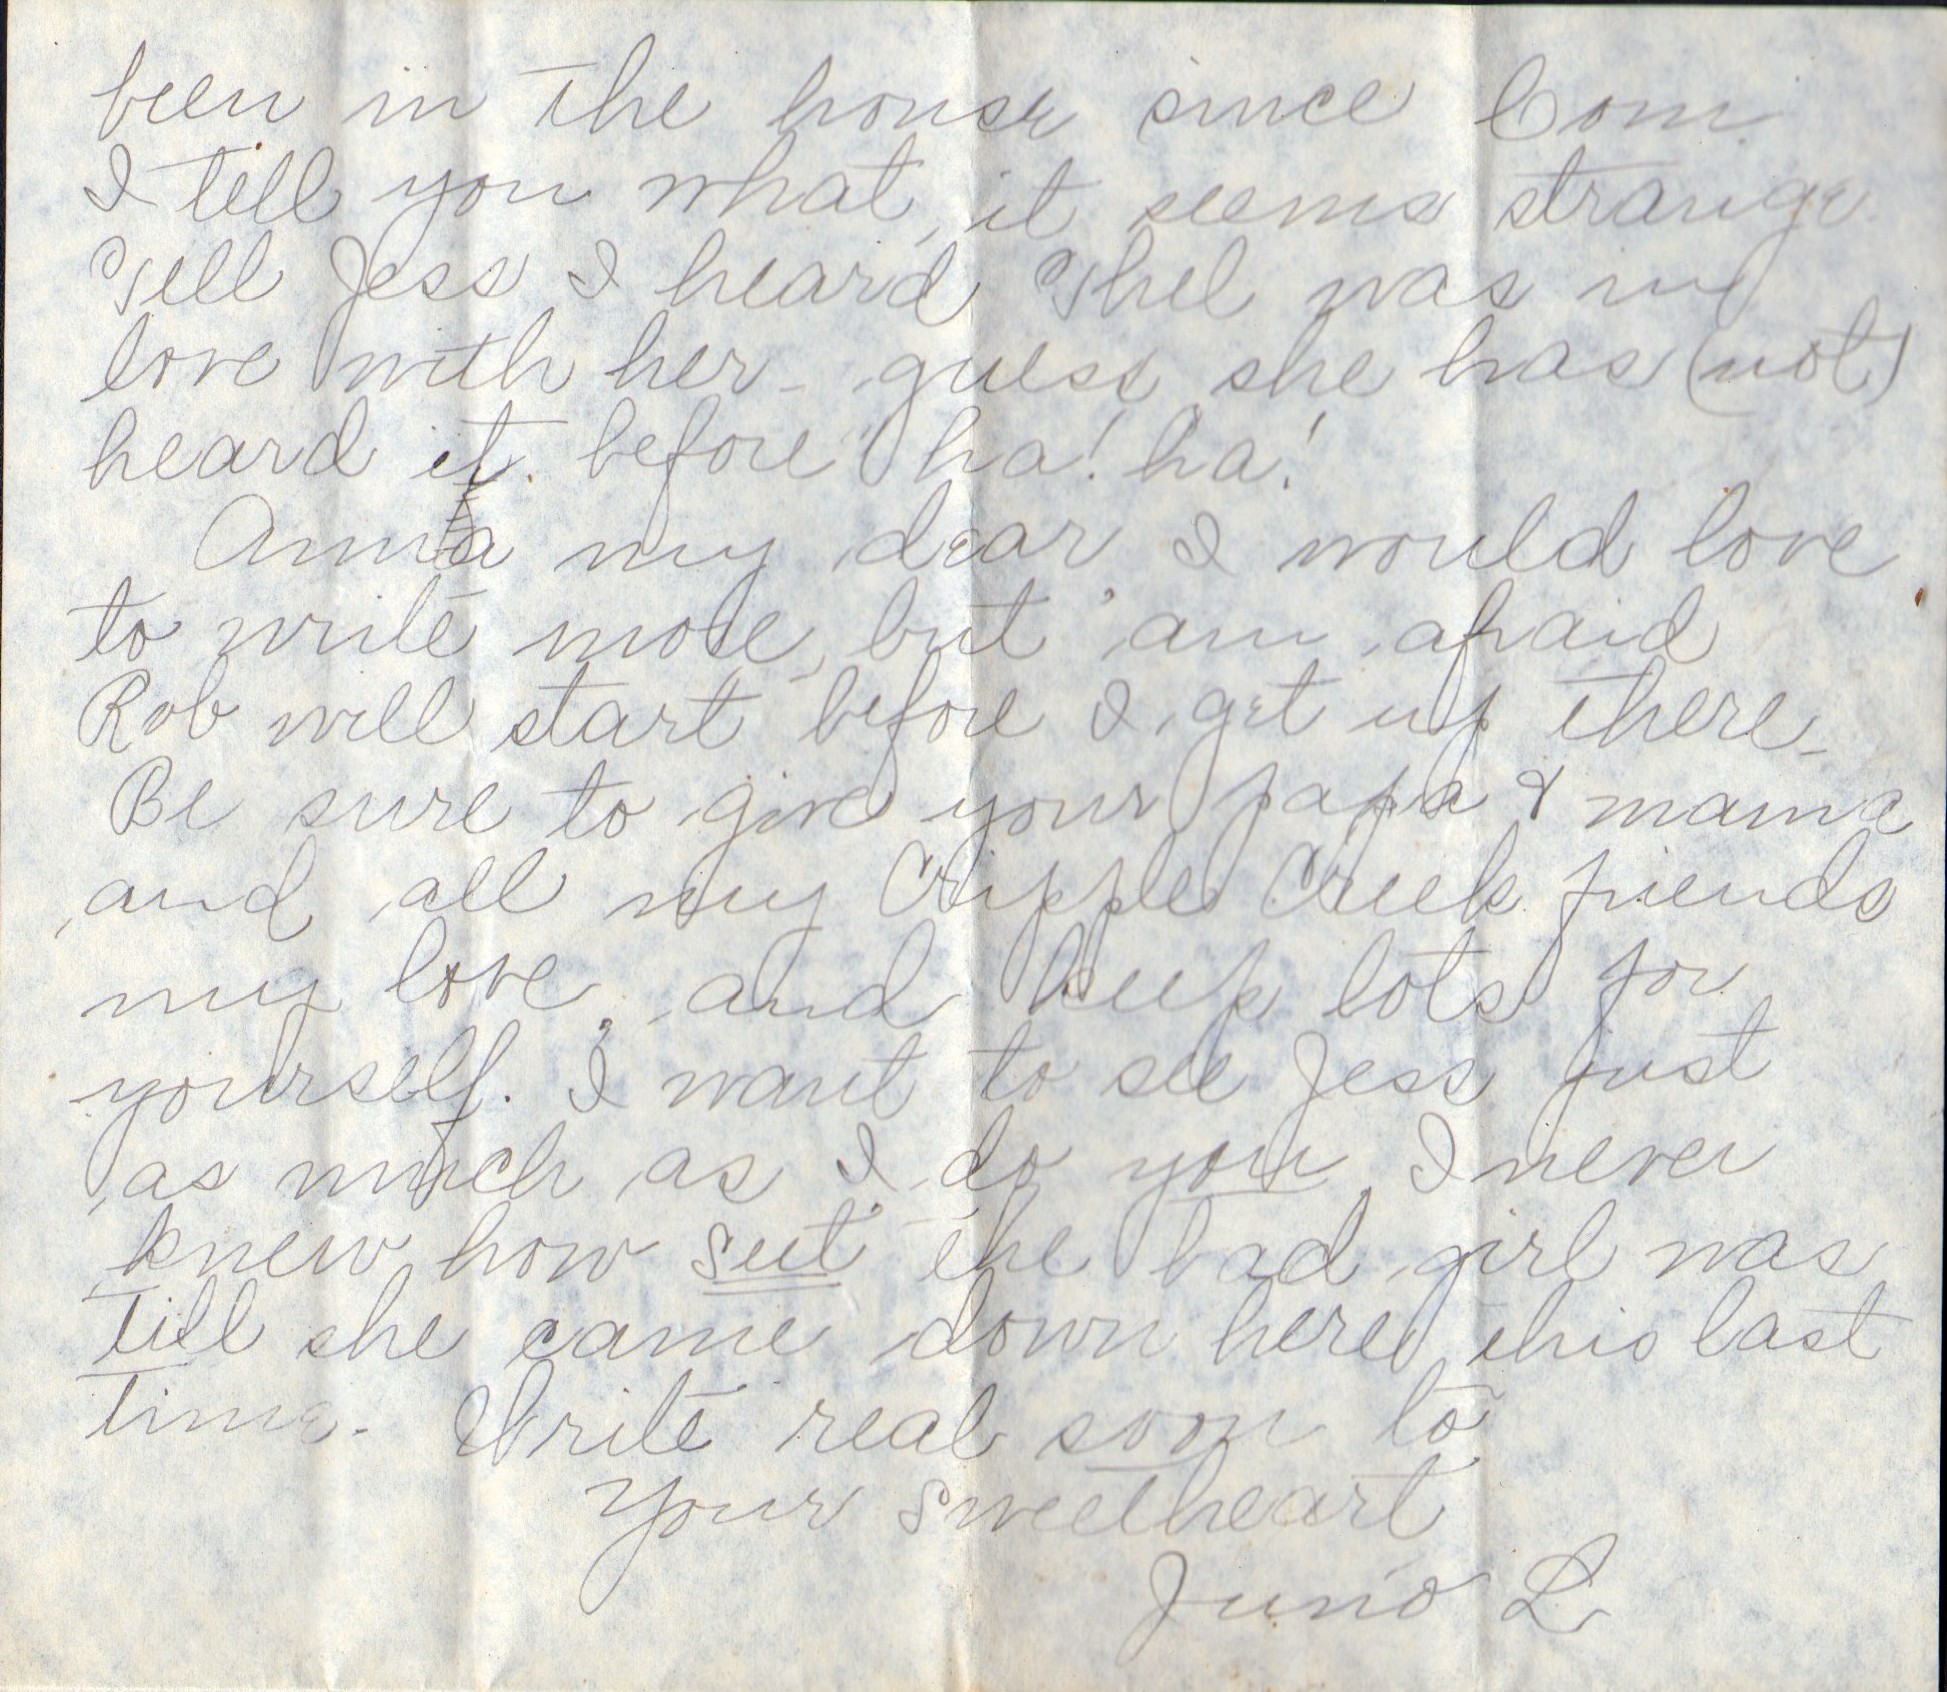 been in the house since Com.
I tell you what, it seems strange.
Tell Jess I heard Thel was in
love with her - guess she has (not)
heard it before ha! ha!
Anna my dear, I would love
to write more, but am afraid
Rob will start before I get up there -
Be sure to give your papa & mama
and all my Cripple Creek friends
my love, and keep lots for
yourself. I want to see Jess just
as much as I do you, I never
knew how sut the bad girl was
till she came down here this last
time - Write real soon to
Your Sweetheart
Juno L